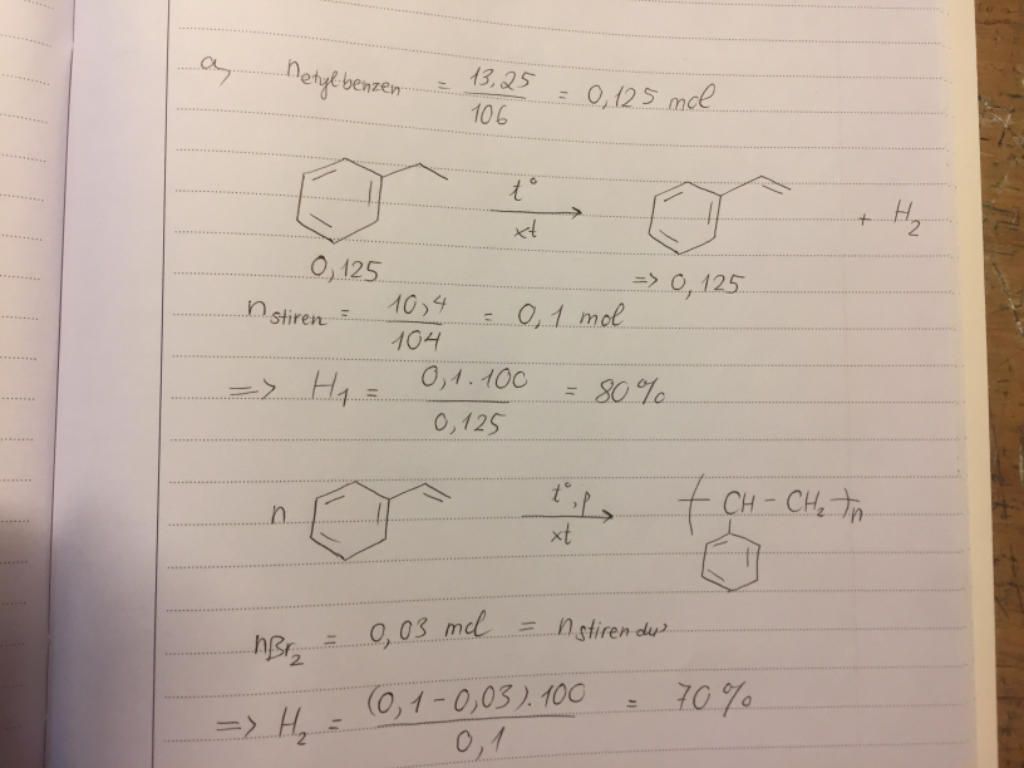 a, n etylbenzen = 13,25 / 106 = 0,125 mol
t° xt + H2
0,125 => 0,125
n stiren = 10,4 / 104 = 0,1 mol
=> H1 = 0,1.100 / 0,125 = 80%
n t°,p xt ( CH - CH2 )n
nBr2 = 0,03 mol = n stiren dư
=> H2 = (0,1-0,03).100 / 0,1 = 70%